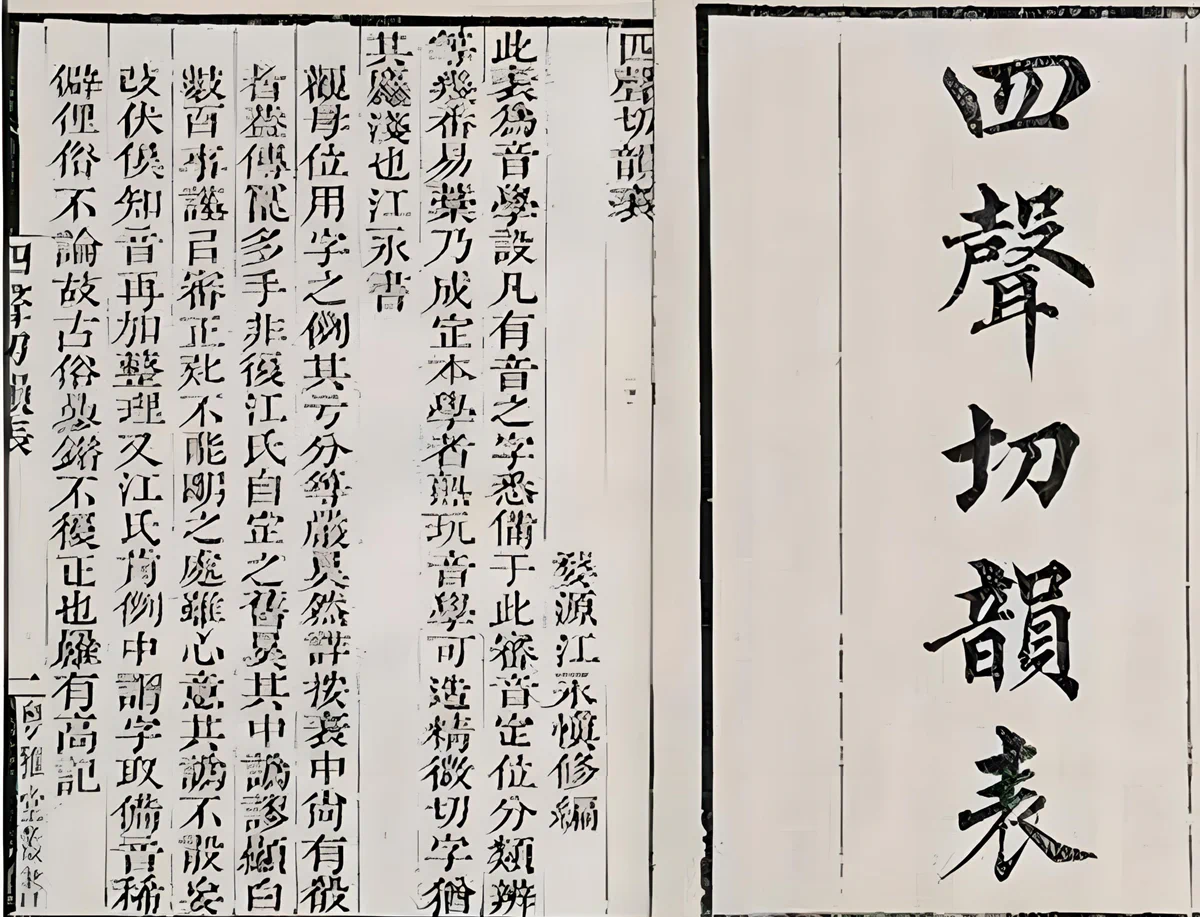 四聲切韻表
四聲切韻表
婺源江永慎修編
此表為音學設凡有音之字悉備于此審音定位分類辨
等幾番易藁乃成定本學者熟玩音學可造精微切字猶
其處淺也江永書
觀母位用字之例其分等嚴矣然詳按表中尚有
者葢傳多手非復江氏自定之舊其中訛謬顯白
數百事謹㠯審正不能明之處雖心意其訛不設
改伏俟知音再加整理又江氏例中謂字取備音稀
僻俚俗不論故古俗錯不復正也有高記
四聲切韻表
一
粵雅堂